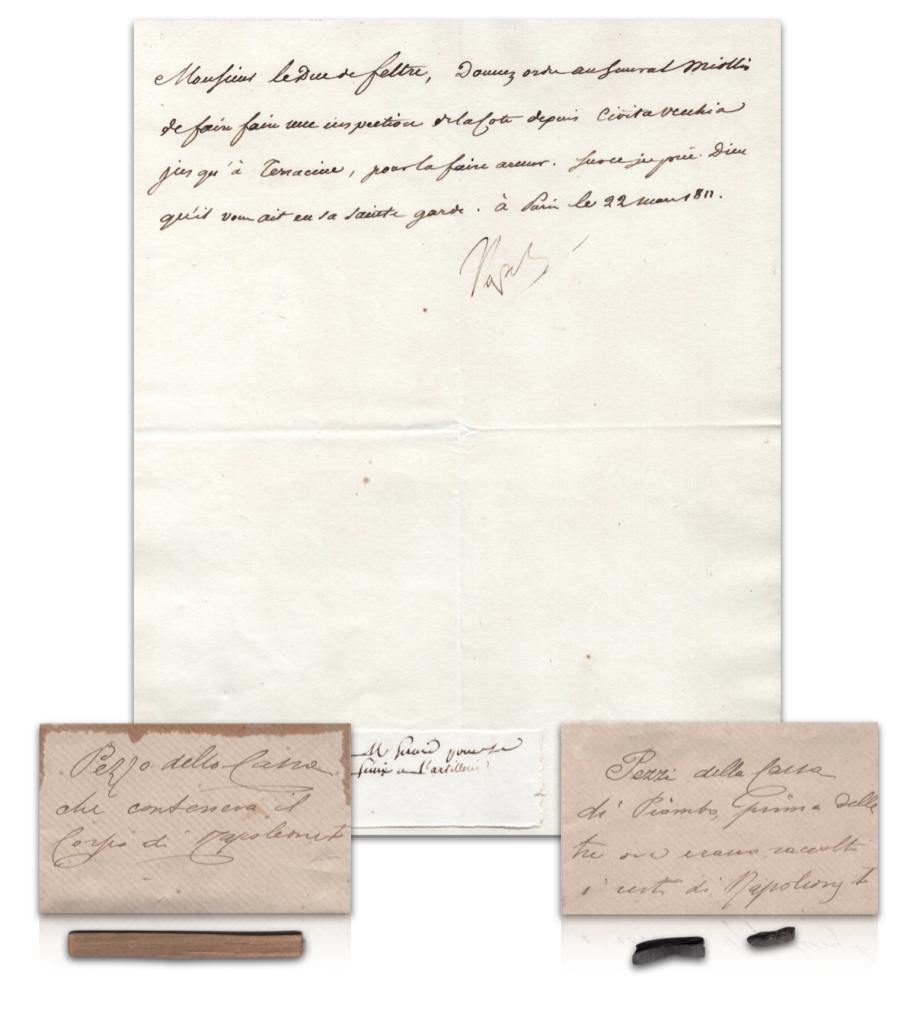 Monsieur le Duc de feltre, Donnez ordre au General Miollis
de faire faire une inspection de la Cote depuis Civita Vecchia
jusqu'à Terracine, pour la faire armer. Sur ce je prie Dieu
qu'il vous ait en sa sainte garde. à Paris le 22 mars 1811.
Nap
M pour
l'artillerie
Pezzo della Cassa
che conteneva il
Corpo di Napoleone I
Pezzi della Cassa
di Piombo, prima delle
tre ove erano raccolti
i resti di Napoleone I